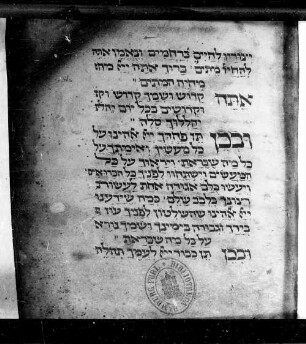 יצוריו לחיים ברחמים ונאמן אתה
להחיות מתים ברוך אתה ייא מחיה
המתים
אתה קדוש ושמך קדוש וקד
וקדושים בכל יום יהללו
יהללוך סלה
ובכן תן פחדך ייא אהינו על
כל מעשיך ואימתך על
כל מה שבראת וייראוך כל
המעשים וישתחוו לפניך כל הברואים
ויעשו כלם אגודה אחת לעשות
רצונך בלבב שלם כמה שידענו
ייא אהינו שהשולטון לפניך עוז
בידך וגבורה בימינך ושמך נורא
על כל מה שבראת
ובכן תן כבוד ייא לעמך תהלה